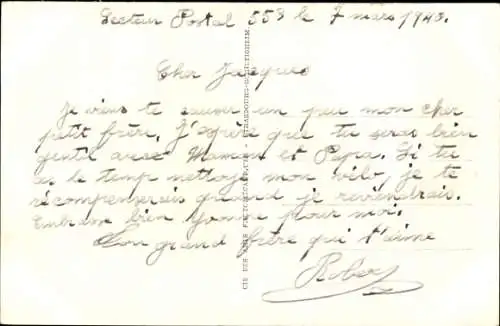 Secteur Postal 558 le 7 mars 1940.
Cher Jacques
Je viens te causer un peu mon cher
petit frère. J'espère que tu seras bien
gentil avec Maman et Papa. Si tu
as le temp nettoye mon vélo, je te
récompenserais quand je reviendrais.
Embrasse bien Yvonne pour moi.
Ton grand frère qui t'aime
Robert
CIE DES ARTS PHOTOMÉCANIQUES - STRASBOURG-SCHILTIGHEIM